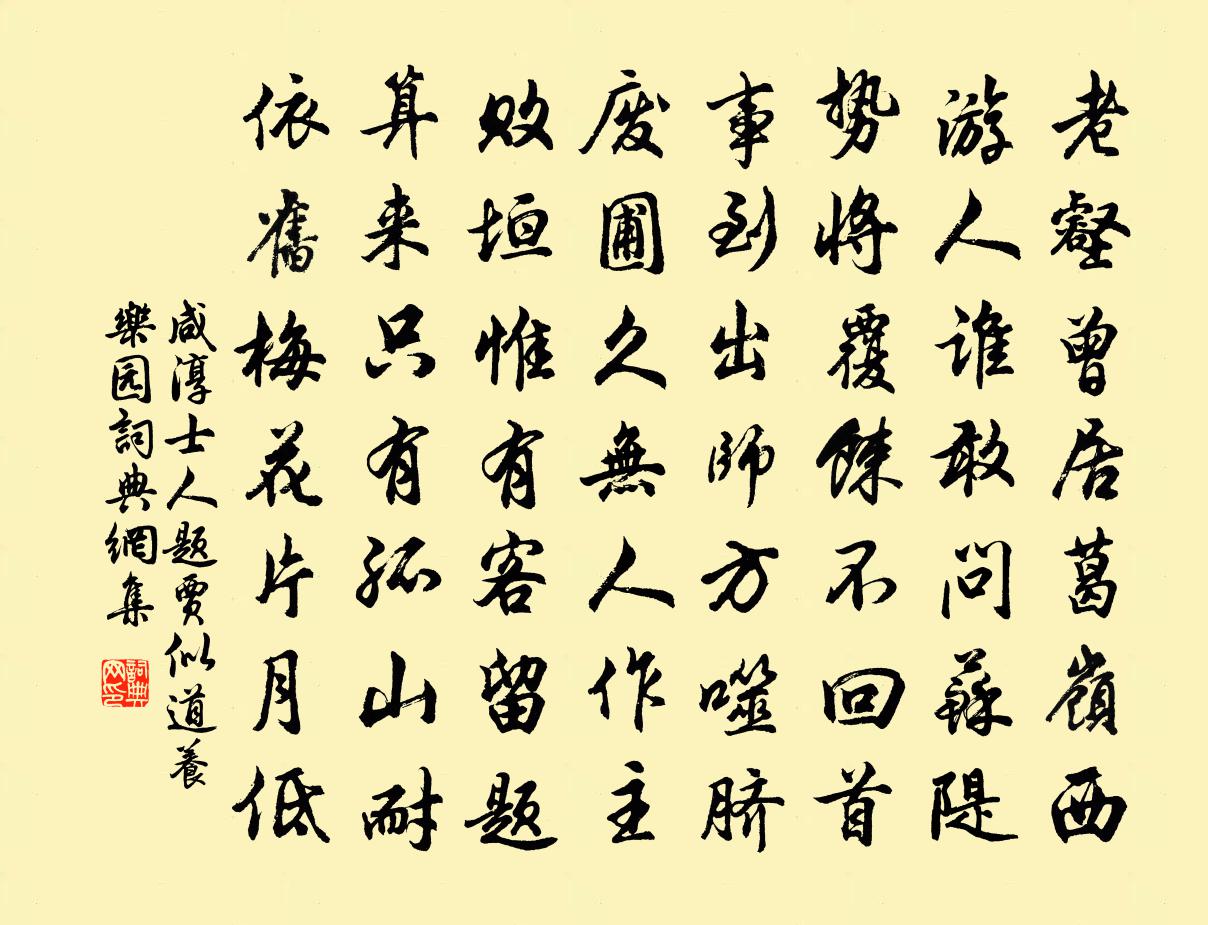 老壑曾居葛嶺西
游人誰敢問蘇隄
勢將覆餗不回首
事到出師方噬脐
废圃久無人作主
败垣惟有客留题
算来只有孤山耐
依舊梅花片月低
咸淳士人题賈似道養
樂园詞典網集
詞典网印